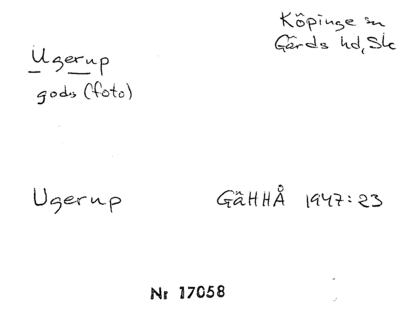 Köpinge sn
Gärds hd, Sk
Ugerup
gods (foto)
Ugerup GäHHÅ 1947:23
Nr 17058